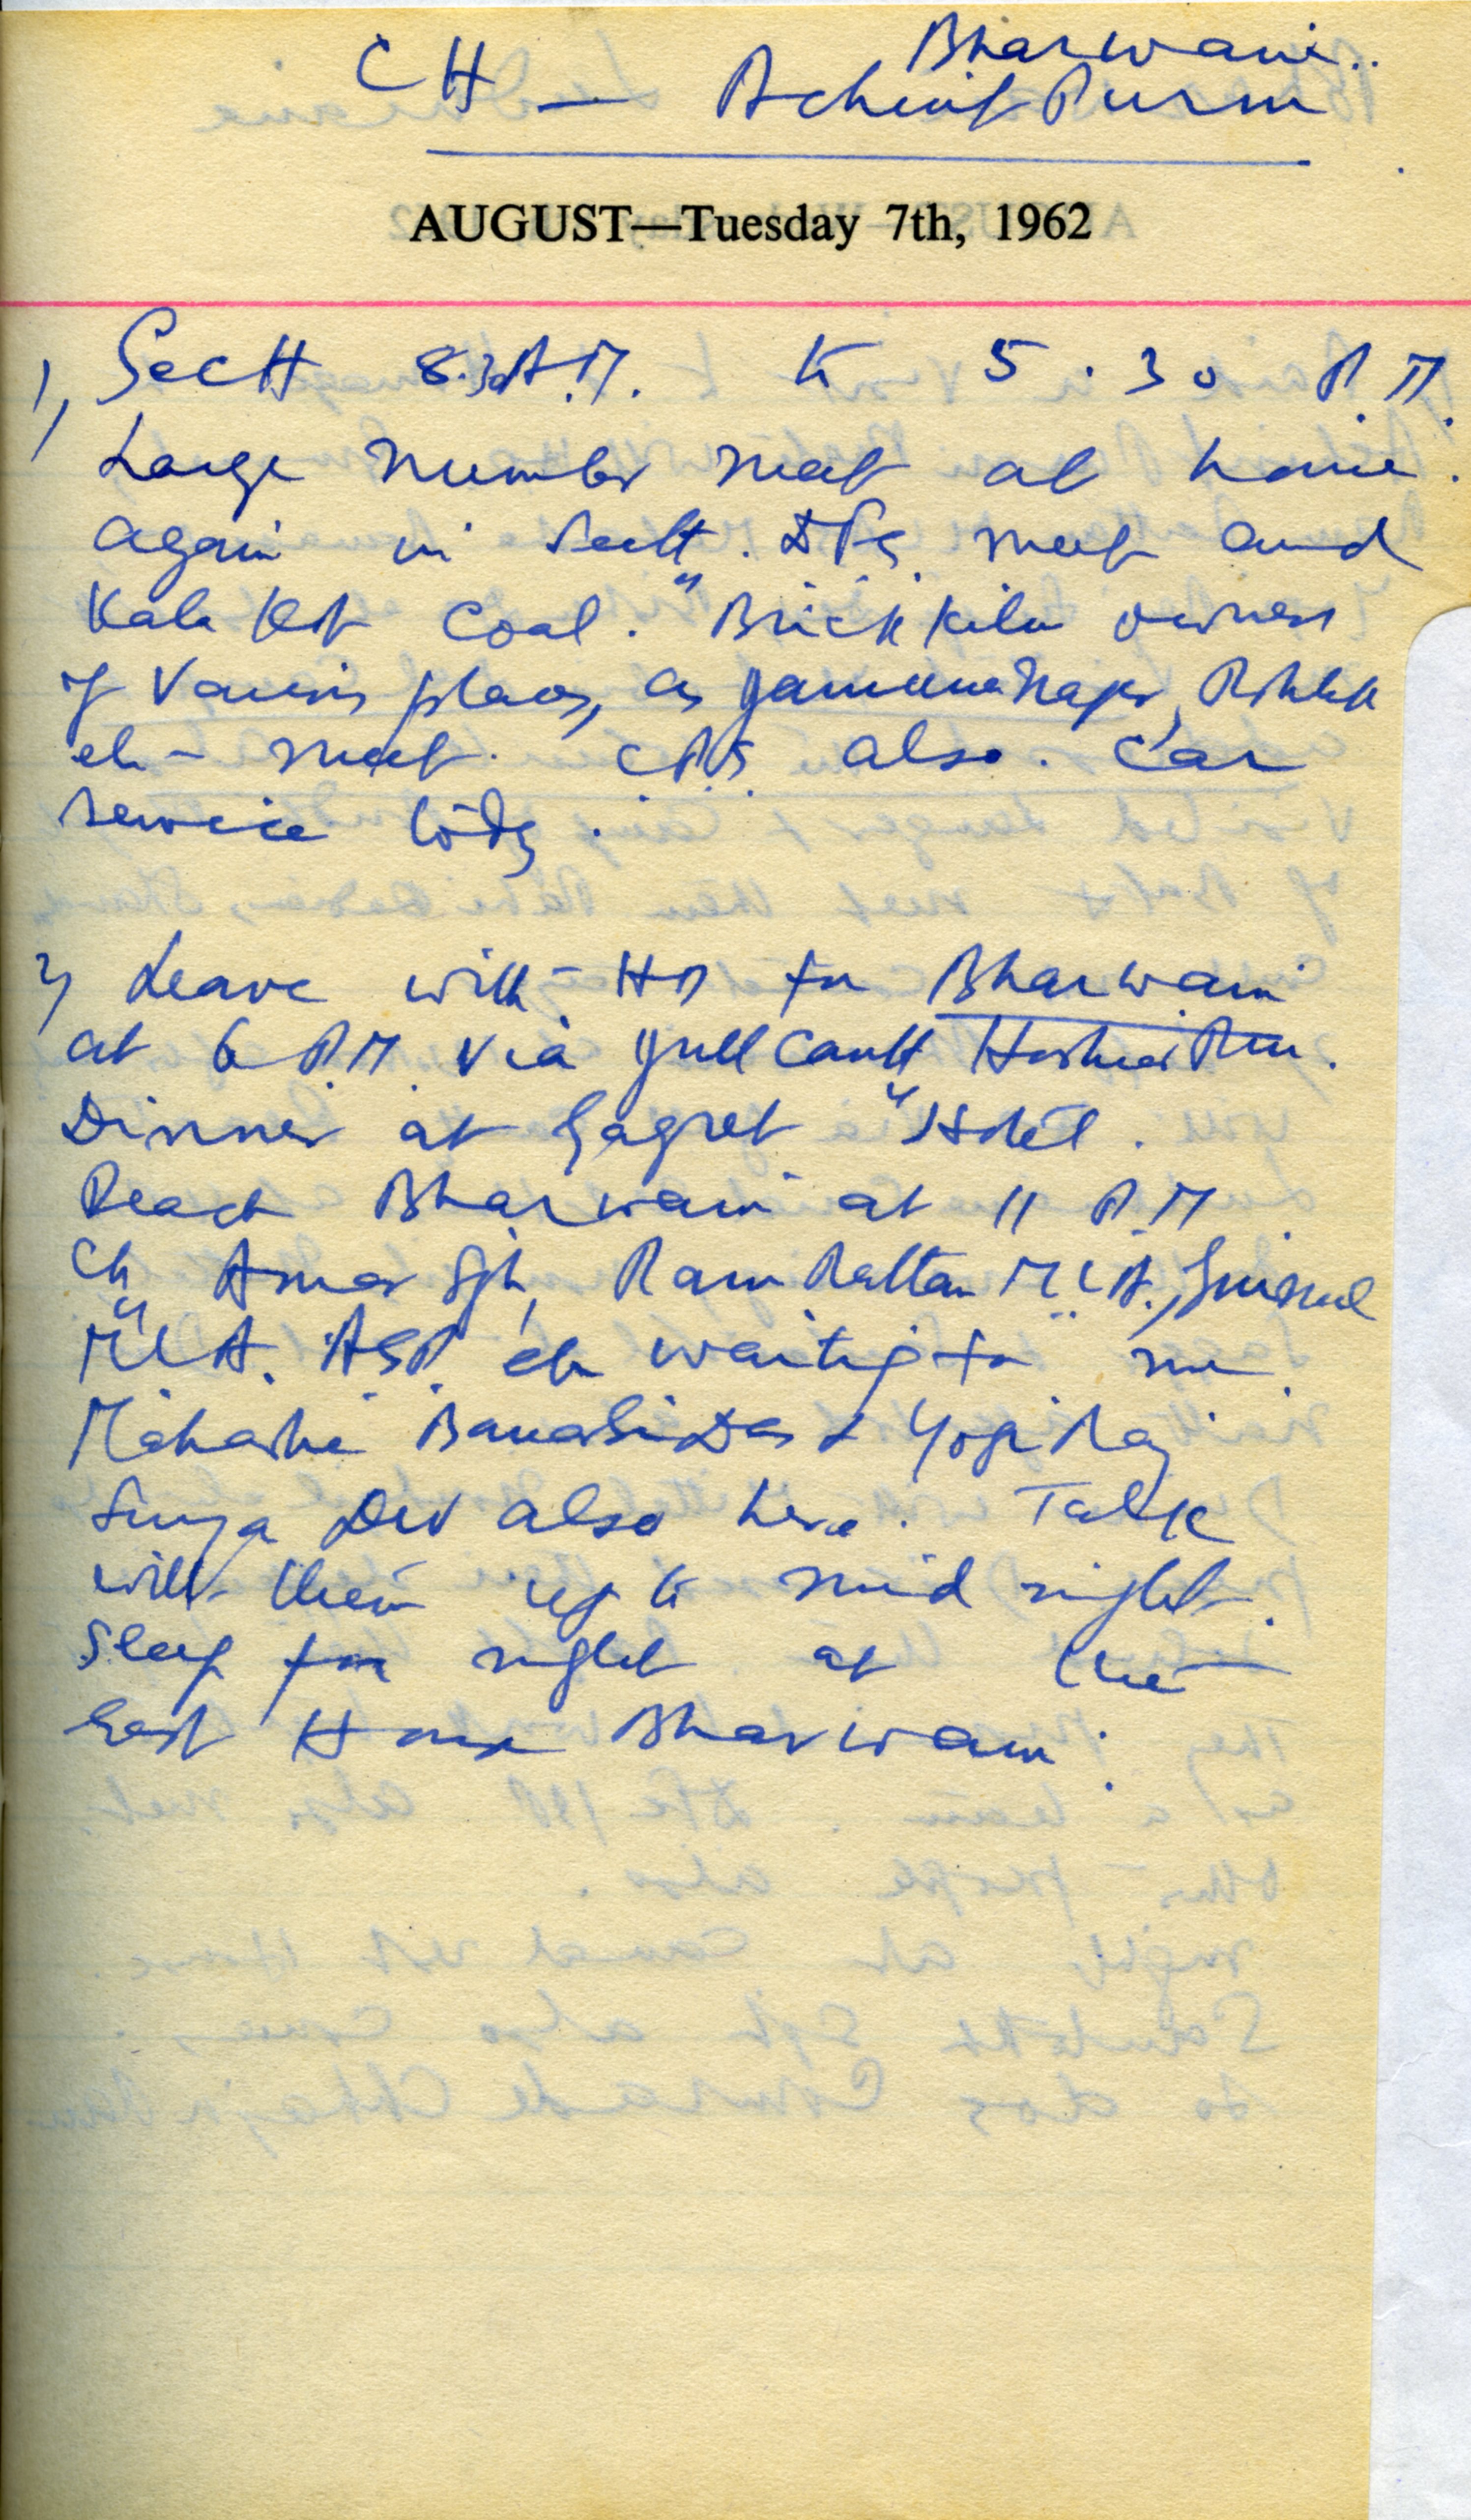 Bharwani..
CH — Achint Purni
AUGUST—Tuesday 7th, 1962
1) Sectt 8.30 A.M. to 5.30 P.M.
Large number meet at home.
again in Sectt. DFs meet and
Kala Kot Coal. Brick kiln owners
of various places, as Jamuna Nagar, Rohtak
etc meet. CPS also. Car
service
2) Leave with HD for Bharwain
at 6 P.M. via Jull Cantt Hoshiar Pur.
Dinner at Gagret Hotel.
Reach Bharwain at 11 P.M.
Ch Amar Sgh, Ram Rattan M.L.A.,
MLA. ASP. etc waiting for me.
Mahashe Banarsi Das & Yogi Raj
Surya Dev also here. Talk
with them up to mid night.
Sleep for night at the
Rest House Bharwain.